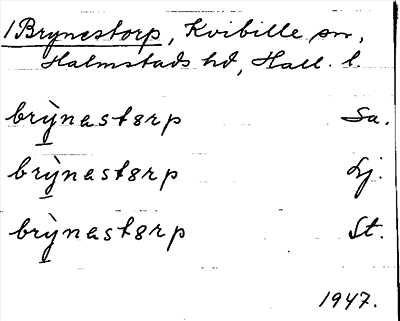 1 Brynestorp, Kvibille sn,
Halmstads hd, Hall. l.
brỳnastɵrp Sa.
brỳnastɵrp Lj.
brỳnastɵrp St.
1947.